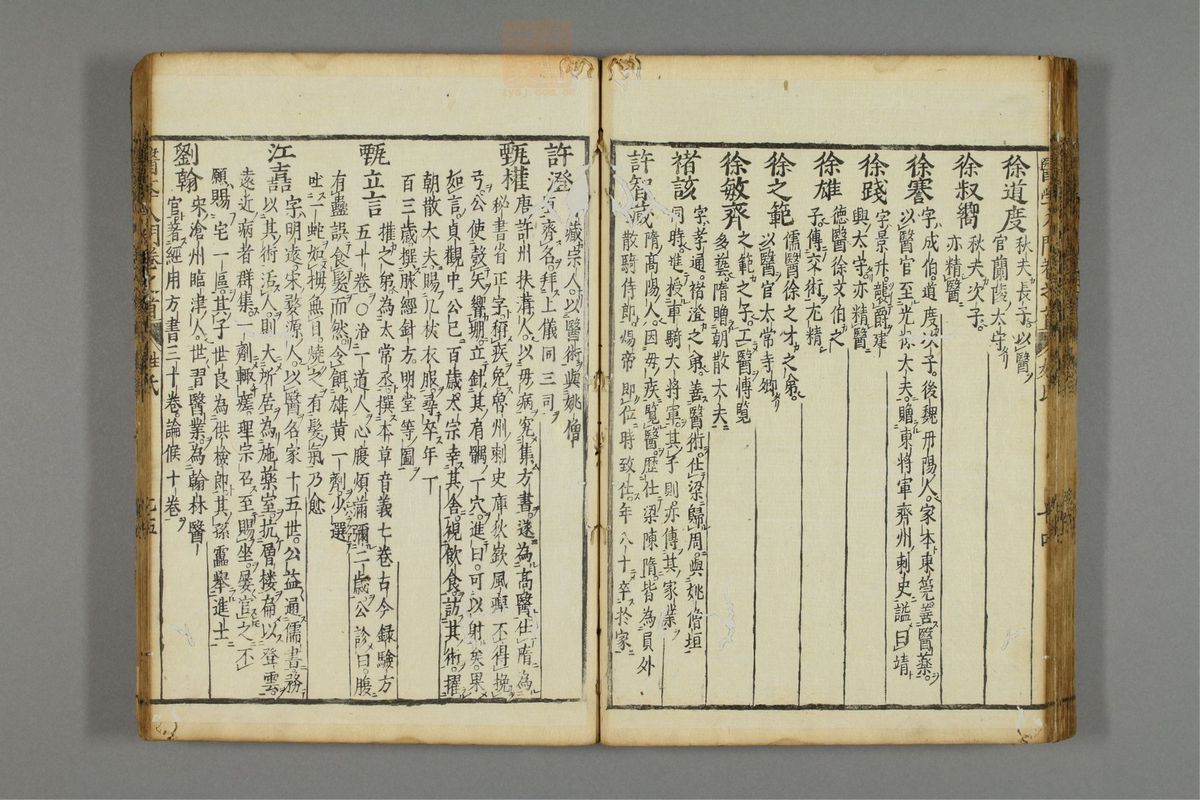 徐道度
秋夫長子以醫
官蘭陵太守
徐叔嚮
秋夫次子
亦精醫
徐謇
字成伯道度次子後魏丹陽人家本東莞善醫藥
以醫官至光祿大夫贈東將軍齊州刺史謚曰靖
徐踐
字景升襲爵建
興太守亦精醫
徐雄
德醫徐文伯之
子傳父術尤精
徐之範
儒醫徐之才之弟
以醫官太常寺卿
徐敏齊
之範之子工醫博覽
多藝隋贈朝散太夫
褚該
字孝通褚澄之弟善醫術仕梁歸周與姚僧垣
同時進授車騎大將軍其子則亦傳其家業
許智藏
隋高陽人因母疾覽醫歷仕梁陳隋皆為員外
散騎侍郎煬帝即位時致仕年八十卒於家
許澄
藏宗人以醫術與姚僧
垣齊名拜上儀同三司
甄權
唐許州扶溝人以母病究集方書遂為高醫仕隋為
秘書省正字稱疾免魯州刺史庫狄嶔風痺不得挽
弓公使彀矢嚮堋立針其肩髃一穴進曰可以射矣果
如言貞觀中公已百歲太宗幸其舍視飲食訪其術擢
朝散大夫賜几杖衣服尋卒年一
百三歲撰脉經針方明堂等圖
甄立言
權之弟為太常丞撰本草音義七卷古今録驗方
五十卷○治一道人心腹煩滿彌二歲公診曰腹
有蠱誤食髮而然令餌雄黄一劑少選
吐一蛇如拇無目燒之有髮氣乃愈
江喜
字明遠宋婺源人以醫名家十五世公益通儒書務
以其術活人則大所居為施藥室抗層楼崙以登雲
遠近病者群集一劑輒瘥理宗召至賜坐晏官之不
願賜宅一區其子世良為供檢郎其孫靁舉進士
劉翰
宋滄州臨津人世習醫業為翰林醫
官著經用方書三十卷論候十卷
姓氏